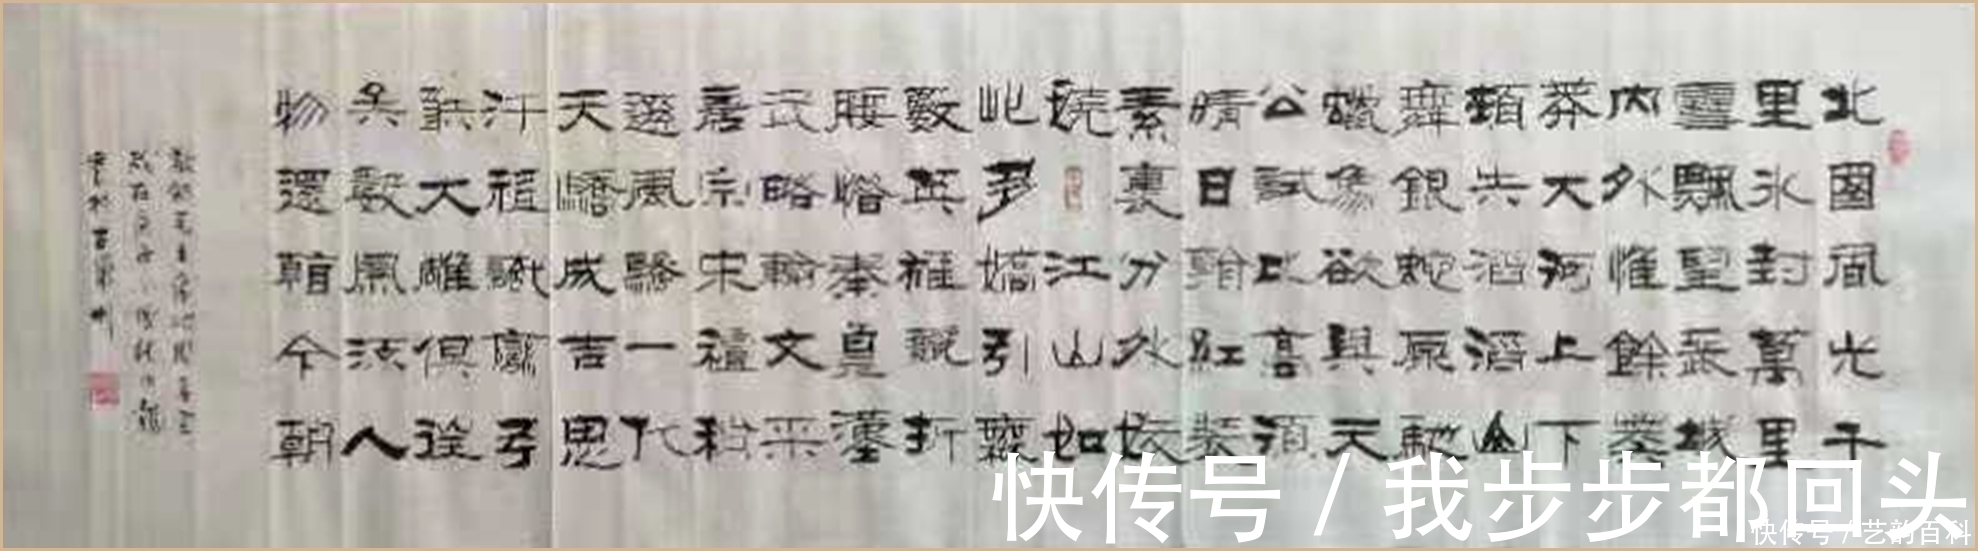 北國風光千
里冰封萬里
雪飄望長城
內外惟餘莽
莽大河上下
頓失滔滔山
舞銀蛇原馳
蠟象欲與天
公試比高須
晴日看紅裝
素裹分外妖
嬈江山如
此多嬌引無
數英雄競折
腰惜秦皇漢
武略輸文采
唐宗宋祖稍
遜風騷一代
天驕成吉思
汗祗識彎弓
射大雕俱往
矣數風流人
物還看今朝
敬錄毛主席沁園春雪
歲在
快传号 / 我步步都回头
快传号 / 艺韵百科